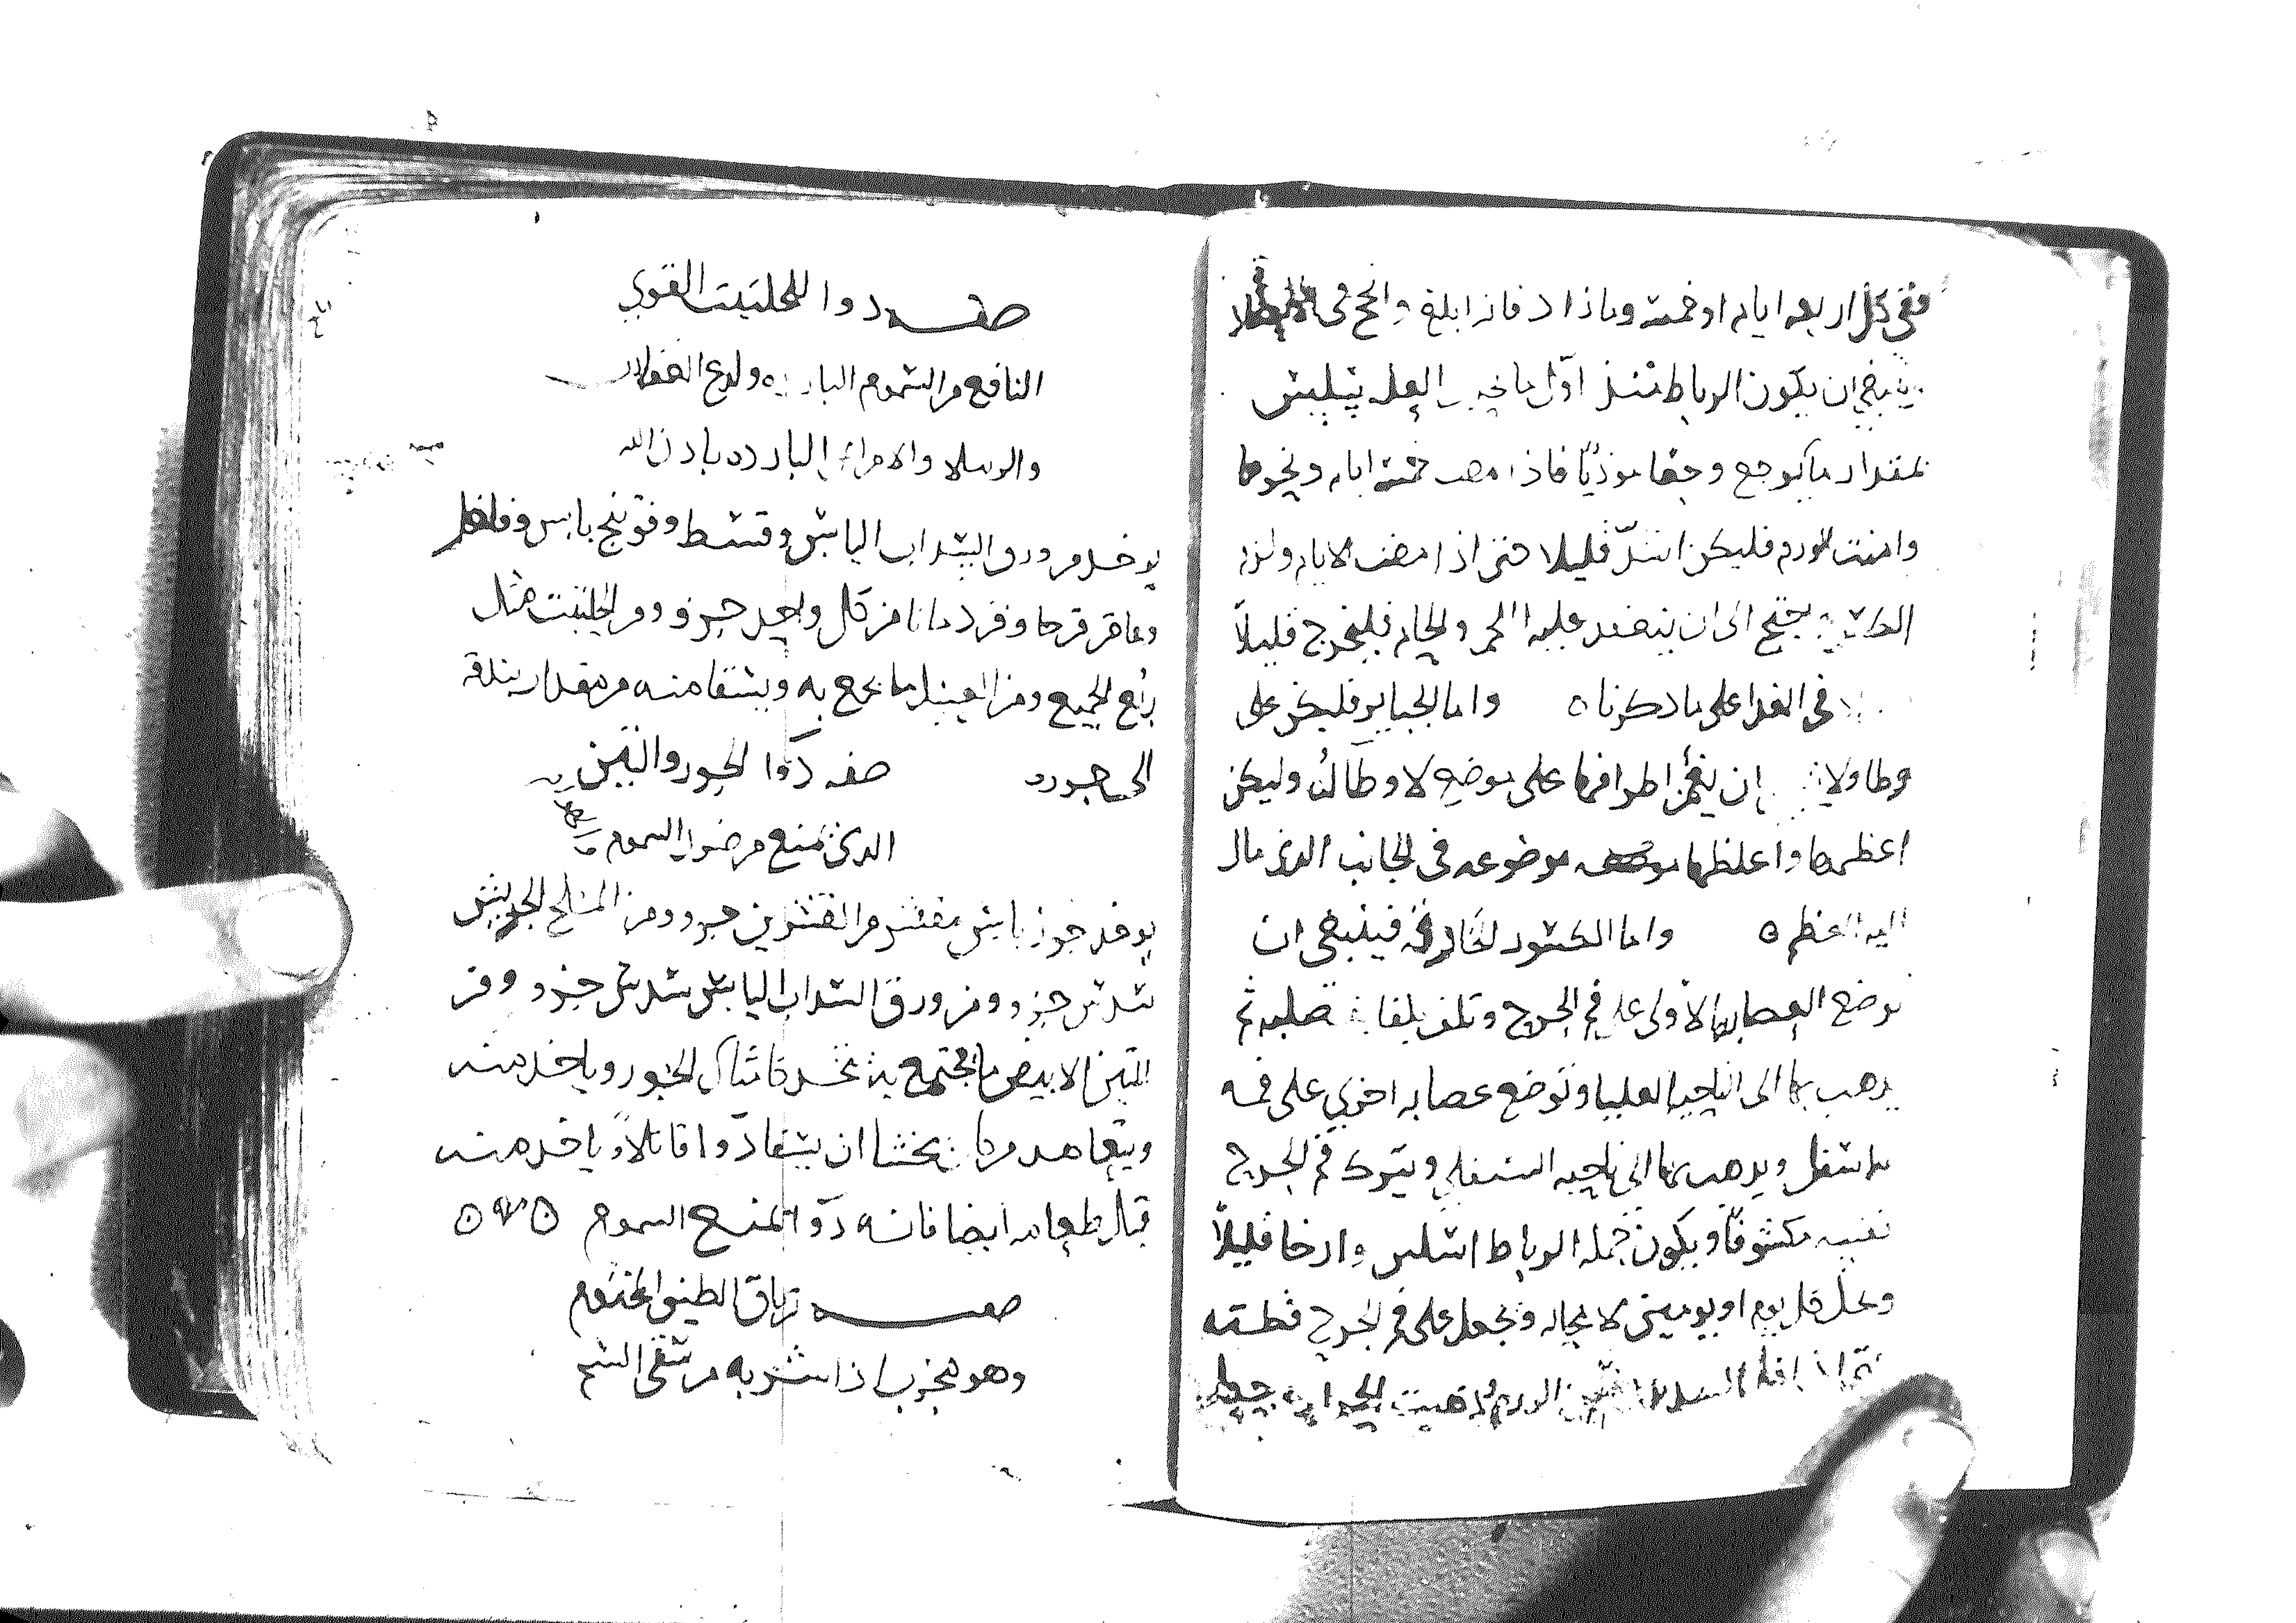 ففى كل اربعه ايام او خمسة وما زاد فانه ابلغ وانجح فى
ينبغى ان يكون الرباط منذ اول ما العله يلبس
بمقدار ما يوجع وجعا موذيا فاذا مضت خمسة ايام ونحوها
وامنت الورم فليكن اشد قليلا حتى اذا مضت الايام ولزم
الى ان ينعقد عليه اللحم والجام فليخرج قليلا
فى الغدا على ما دكرنا ه واما الجباير فليكن على
وطاولا ان يغمز اطرافها على موضع لا وطا له وليكن
اعظمها واغلظها موضوعه فى الجانب الذى مال
اليه العظم ه واما الكسور الخارقه فينبغى ان
توضع العصابه الاولى على فم الجرح وتلف بلفا صلبه ثم
يدهب بها الى الناحيه العليا وتوضع عصابه اخرى على فمه
اسفل ويدهب بها الى ناحيه السفلى ويترك فم الجرح
نفسه مكشوفا ويكون جمله الرباط اسلس وارخا قليلا
وتحل كل يوم او يومين لا محاله وتجعل على فم الجرح قطنه
الورم
صفه دوا الحلتيت القوى
النافع من السموم البارده ولدع العقارب
والرتيلا والامراض البارده بادن الله
يوخد من ورق السداب اليابس وقسط وفوتنج يابس وفلفل
وعاقر قرحا وقردمانا من كل واحد جزو ومن الحلتيت مثل
ربع الجميع ومن العسل ما يجمع به ويسقا منه من مقدار بندقه
الى جوزه صفه دوا الجوز والتين
الدى يمنع من ضرر السموم
يوخد جوز يابس مقشر من القشرين جزو ومن الملح الجريش
سدس جزو ومن ورق السداب اليابس سدس جزو ومن
التين الابيض ما يجتمع به يتخد كامثال الجوز وياخد منه
ويتعاهد من كان يخشا ان يسقا دوا قاتلا وياخد منه
قبل طعامه ايضا فانه دوا يمنع السموم ه ه
صفه ترياق الطين المختوم
وهو مجرب اذا شربه من سقى السم